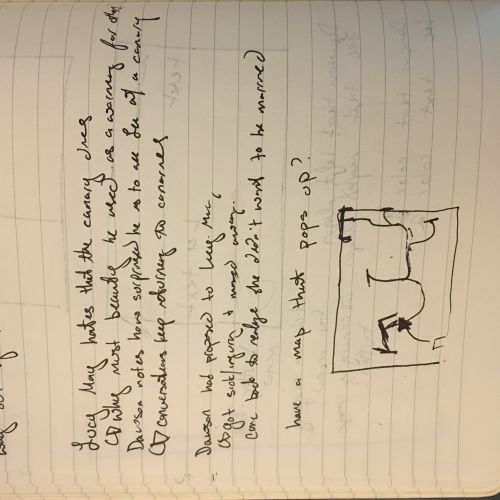 Lucy May hates that the canary dies
Why must beauty be used as a warning for
Dawson notes how surprised he is to see her at a canary
conversations keep returning to canaries
Dawson had proposed to Lucy May,
got sick/injury & moved away.
Came back to realize she didn't want to be married
have a map that pops up?